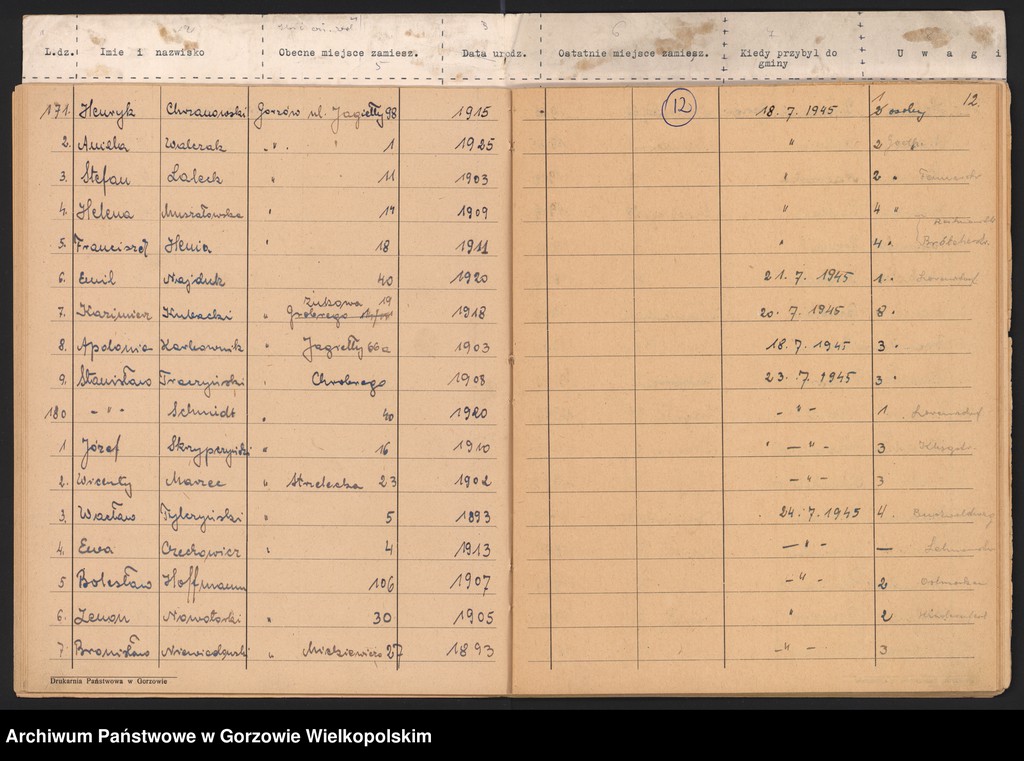 L.dz. Imie i nazwisko Obecne miejsce zamiesz. Data urodz. Ostatnie miejsce zamiesz. Kiedy przybył do gminy U w a g i
3 6 7
5
12 1 12.
171. Henryk Chrzanowski Gorzów ul. Jagiełły 98 1915 18.7.1945 2 osoby
2. Aniela Walczak " 1 1925 " 2
3. Stefan Laleck " 11 1903 " 2 "
4. Helena " 17 1909 " 4 "
5. Franciszek Henia " 18 1911 " 4 "
6. Emil Najduk 40 1920 21.7.1945 1 "
7. Kazimierz Kubacki " Żukowa 19 1918 20.7.1945 8 "
8. Apolonia Karbownik " Jagiełły 66a 1903 18.7.1945 3 "
9. Stanisław Traczyński " Chrobrego 1908 23.7.1945 3 "
180 -"- Schmidt " 40 1920 -"- 1
1 Józef " 16 1910 " -"- 3
2. Wicenty Marzec " Strzelecka 23 1902 -"- 3
3. Wacław Tylczyński " 5 1893 24.7.1945 4.
4. Ewa Orzechowicz " 4 1913 -"- —
5 Bolesław Hoffmann 106 1907 -"- 2
6. Zenon " 30 1905 " 2
7 Bronisław " Mickiewicza 27 1893 -"- 3
Drukarnia Państwowa w Gorzowie
Archiwum Państwowe w Gorzowie Wielkopolskim